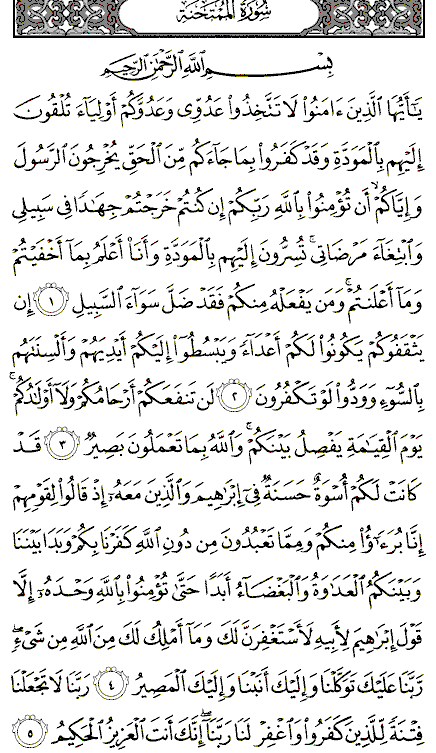 سُورَةُ المُمْتَحنَةِ
بِسْمِ اللَّهِ الرَّحْمَٰنِ الرَّحِيمِ
يَٰٓأَيُّهَا ٱلَّذِينَ ءَامَنُوا۟ لَا تَتَّخِذُوا۟ عَدُوِّى وَعَدُوَّكُمْ أَوْلِيَآءَ تُلْقُونَ
إِلَيْهِم بِٱلْمَوَدَّةِ وَقَدْ كَفَرُوا۟ بِمَا جَآءَكُم مِّنَ ٱلْحَقِّ يُخْرِجُونَ ٱلرَّسُولَ
وَإِيَّاكُمْ ۙ أَن تُؤْمِنُوا۟ بِٱللَّهِ رَبِّكُمْ إِن كُنتُمْ خَرَجْتُمْ جِهَٰدًا فِى سَبِيلِى
وَٱبْتِغَآءَ مَرْضَاتِى ۚ تُسِرُّونَ إِلَيْهِم بِٱلْمَوَدَّةِ وَأَنَا۠ أَعْلَمُ بِمَآ أَخْفَيْتُمْ
وَمَآ أَعْلَنتُمْ ۚ وَمَن يَفْعَلْهُ مِنكُمْ فَقَدْ ضَلَّ سَوَآءَ ٱلسَّبِيلِ ١ إِن
يَثْقَفُوكُمْ يَكُونُوا۟ لَكُمْ أَعْدَآءً وَيَبْسُطُوٓا۟ إِلَيْكُمْ أَيْدِيَهُمْ وَأَلْسِنَتَهُم
بِٱلسُّوٓءِ وَوَدُّوا۟ لَوْ تَكْفُرُونَ ٢ لَن تَنفَعَكُمْ أَرْحَامُكُمْ وَلَآ أَوْلَٰدُكُمْ ۚ
يَوْمَ ٱلْقِيَٰمَةِ يَفْصِلُ بَيْنَكُمْ ۚ وَٱللَّهُ بِمَا تَعْمَلُونَ بَصِيرٌ ٣ قَدْ
كَانَتْ لَكُمْ أُسْوَةٌ حَسَنَةٌ فِىٓ إِبْرَٰهِيمَ وَٱلَّذِينَ مَعَهُۥٓ إِذْ قَالُوا۟ لِقَوْمِهِمْ
إِنَّا بُرَءَٰٓؤُا۟ مِنكُمْ وَمِمَّا تَعْبُدُونَ مِن دُونِ ٱللَّهِ كَفَرْنَا بِكُمْ وَبَدَا بَيْنَنَا
وَبَيْنَكُمُ ٱلْعَدَٰوَةُ وَٱلْبَغْضَآءُ أَبَدًا حَتَّىٰ تُؤْمِنُوا۟ بِٱللَّهِ وَحْدَهُۥٓ إِلَّا
قَوْلَ إِبْرَٰهِيمَ لِأَبِيهِ لَأَسْتَغْفِرَنَّ لَكَ وَمَآ أَمْلِكُ لَكَ مِنَ ٱللَّهِ مِن شَىْءٍ ۖ
رَّبَّنَا عَلَيْكَ تَوَكَّلْنَا وَإِلَيْكَ أَنَبْنَا وَإِلَيْكَ ٱلْمَصِيرُ ٤ رَبَّنَا لَا تَجْعَلْنَا
فِتْنَةً لِّلَّذِينَ كَفَرُوا۟ وَٱغْفِرْ لَنَا رَبَّنَآ ۖ إِنَّكَ أَنتَ ٱلْعَزِيزُ ٱلْحَكِيمُ ٥